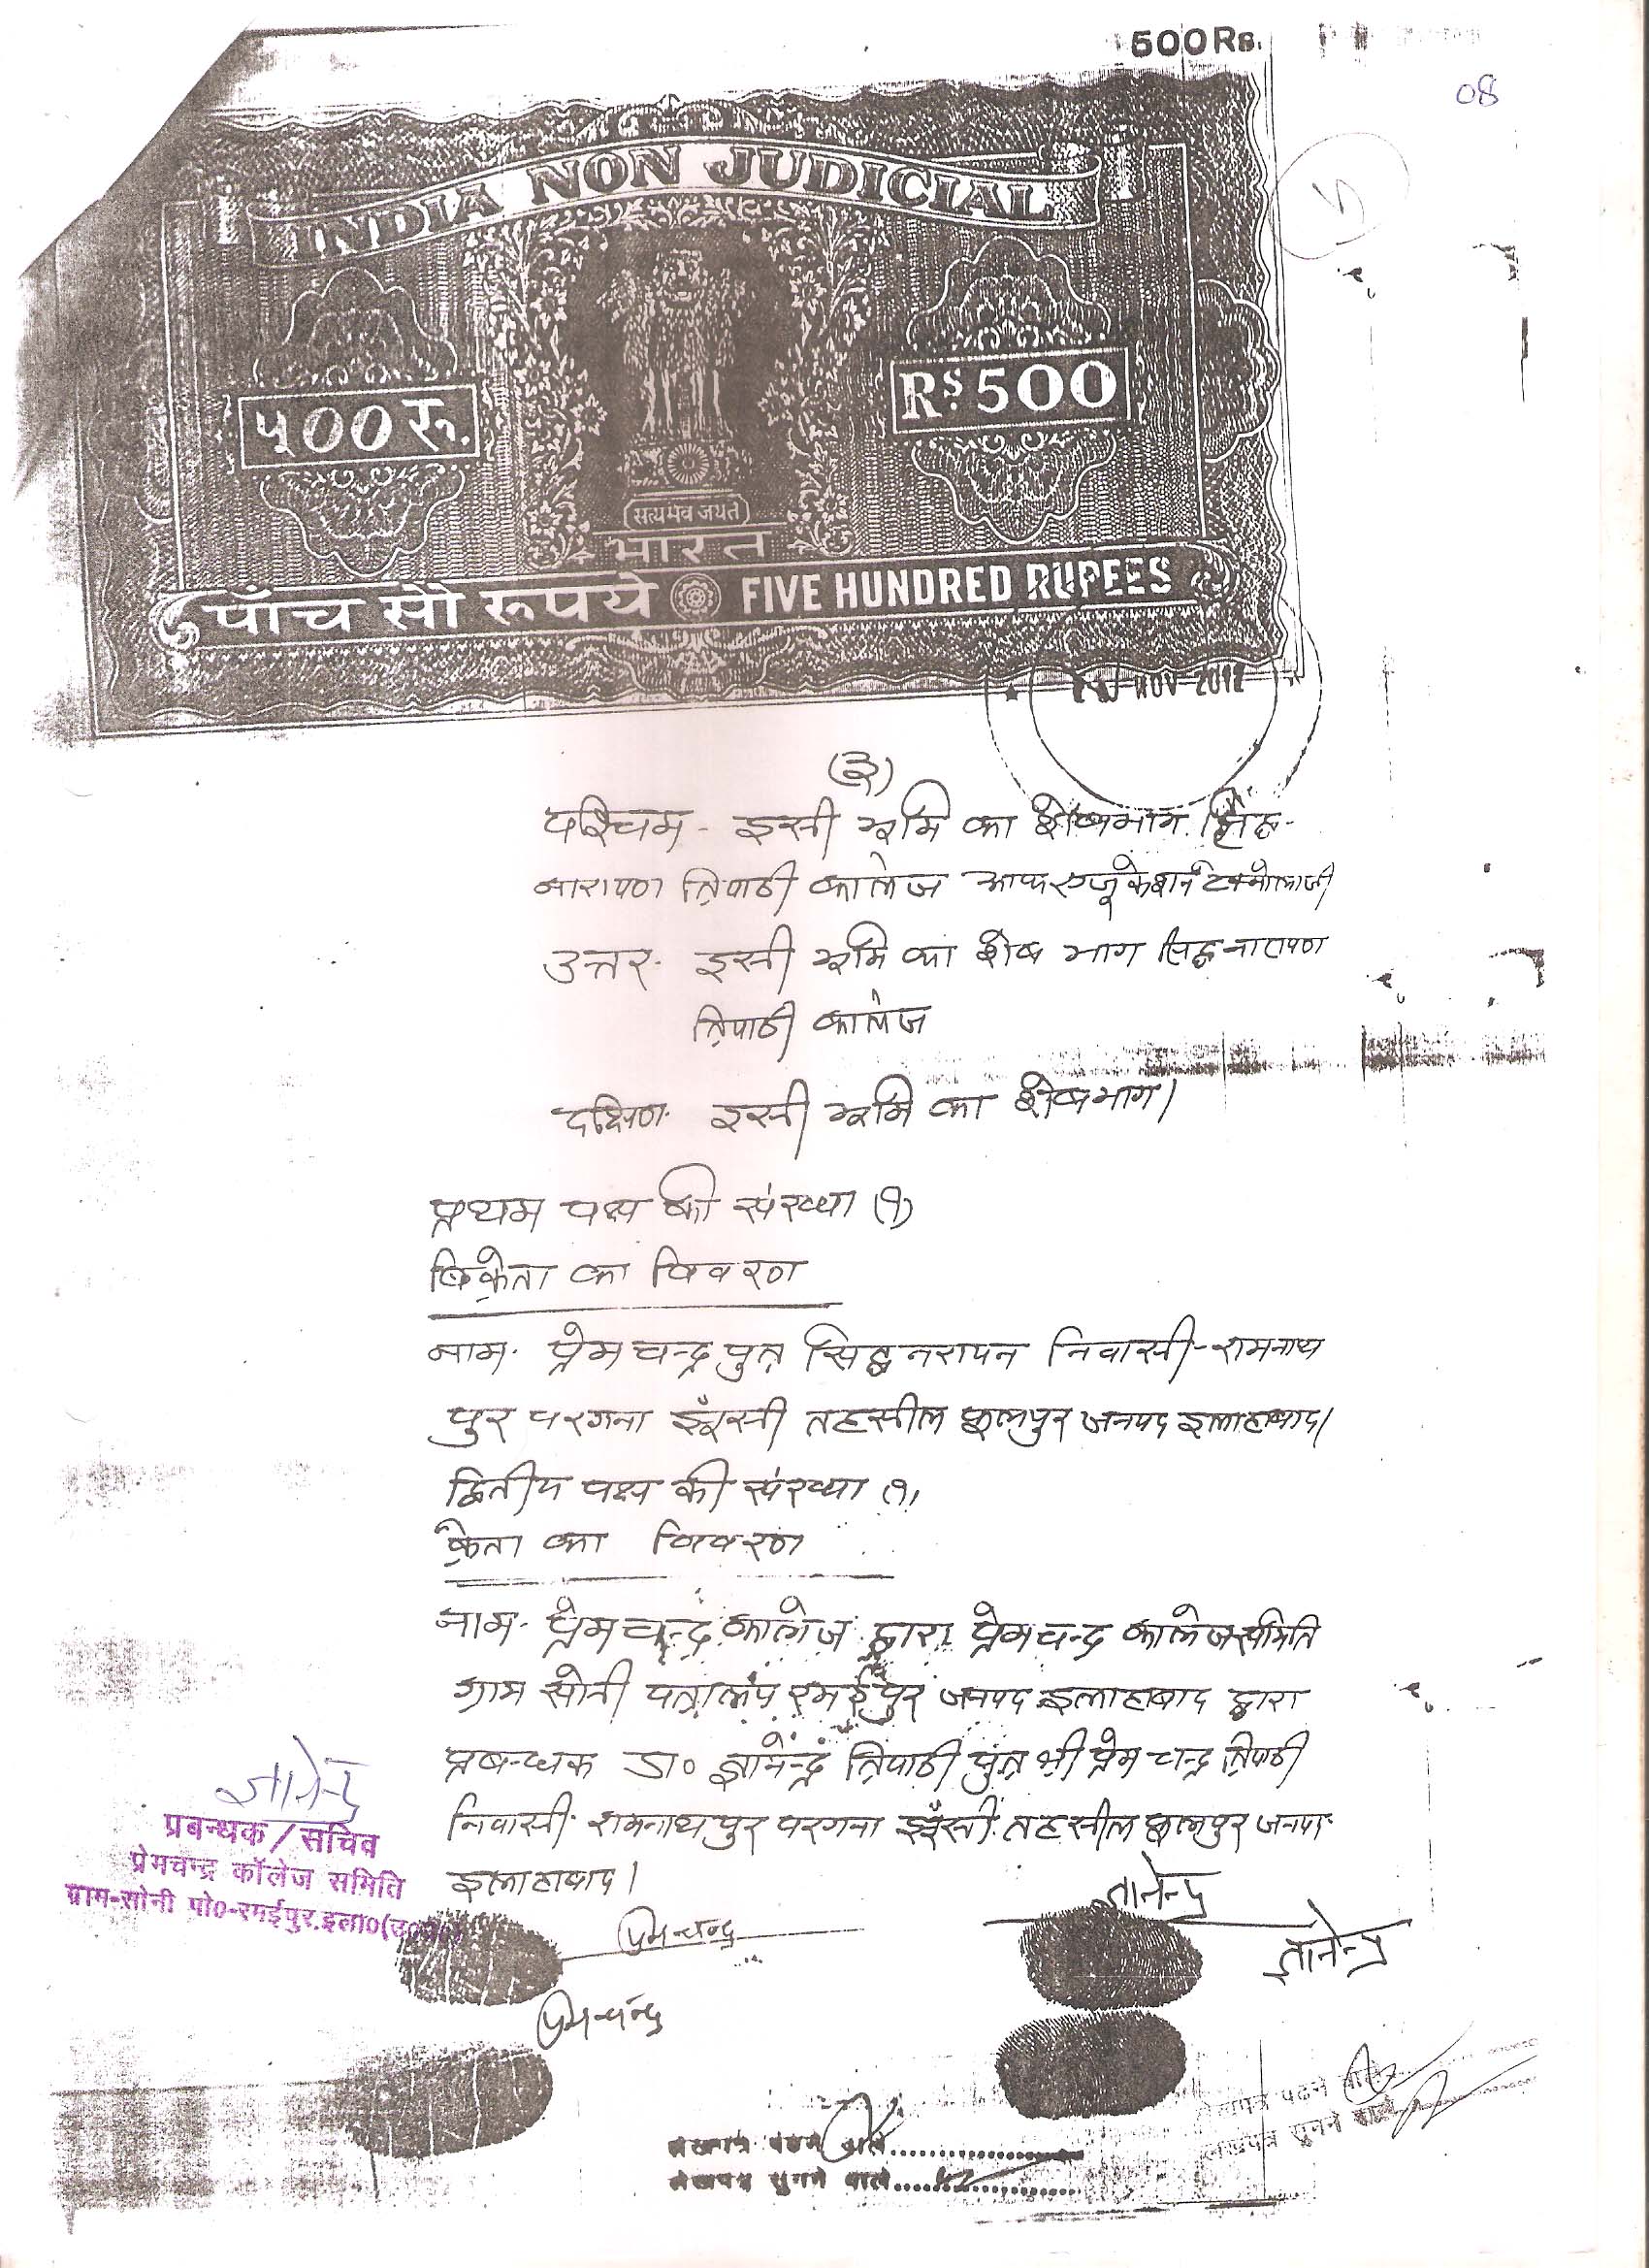 500Rs.
08
INDIA NON JUDICIAL
५00 रु.
Rs. 500
सत्यमेव जयते
भारत
पाँच सौ रूपये FIVE HUNDRED RUPEES
NOV 2012
(३)
पश्चिम - इसी भूमि का शेषभाग सिद्ध-
नारायण त्रिपाठी कालेज आफ एजूकेशन टेक्नोलाजी
उत्तर - इसी भूमि का शेष भाग सिद्धनारायण
त्रिपाठी कालेज
दक्षिण - इसी भूमि का शेषभाग।
प्रथम पक्ष की संख्या (१)
विक्रेता का विवरण
नाम - प्रेमचन्द्र पुत्र सिद्धनरायन निवासी - रामनाथ
पुर परगना झूँसी तहसील फूलपुर जनपद इलाहाबाद।
द्वितीय पक्ष की संख्या (१)
क्रेता का विवरण
नाम - प्रेमचन्द्र कालेज द्वारा प्रेमचन्द्र कालेज समिति
ग्राम सोनी पत्रालय रमईपुर जनपद इलाहाबाद द्वारा
प्रबन्धक डा० ज्ञानेन्द्र त्रिपाठी पुत्र श्री प्रेम चन्द्र त्रिपाठी
निवासी - रामनाथपुर परगना झूँसी तहसील फूलपुर जनपद
इलाहाबाद।
ज्ञानेन्द्र
प्रबन्धक / सचिव
प्रेमचन्द्र कॉलेज समिति
ग्राम-सोनी पो०-रमईपुर.इला०(उ०प्र०)
प्रेमचन्द्र
ज्ञानेन्द्र
ज्ञानेन्द्र
प्रेमचन्द्र
लेखपत्र पढने वाले
लेखपत्र सुनने वाले
लेखपत्र पढने वाले
लेखपत्र सुनने वाले